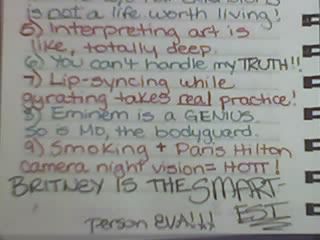 is not a life worth living!
5) Interpreting art is
like, totally deep.
6) You can't handle my TRUTH!!
7) Lip-syncing while
gyrating takes real practice!
8) Eminem is a GENIUS.
So is Mo, the bodyguard.
9) Smoking + Paris Hilton
camera night vision = HOTT!
BRITNEY IS THE SMART-
EST
person EVA!!!